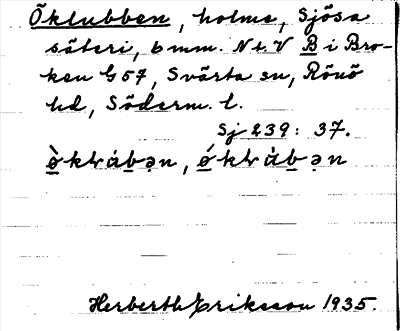 Öklubben, holme, Sjösa
säteri, 6 mm. N t. V B i Bro-
ken G 57, Svärta sn, Rönö
hd, Söderm. l.
Sj 239: 37.
Herberth Eriksson 1935.